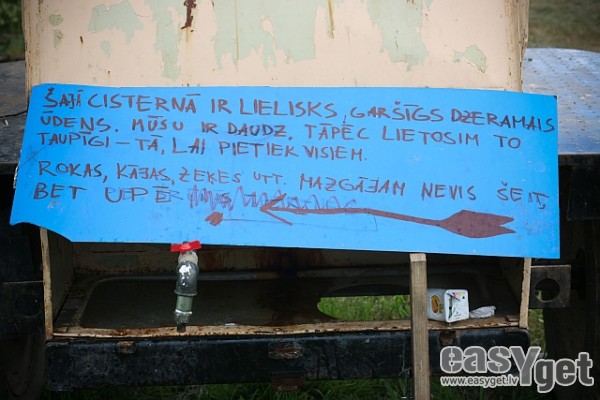 ŠAJĀ CISTERNĀ IR LIELISKS, GARŠĪGS DZERAMAIS
ŪDENS. MŪSU IR DAUDZ, TĀPĒC LIETOSIM TO
TAUPĪGI – TĀ, LAI PIETIEK VISIEM.
ROKAS, KĀJAS, ZEĶES UTT. MAZGĀJAM NEVIS ŠEIT,
BET UPĒ
easYget
www.easyget.lv